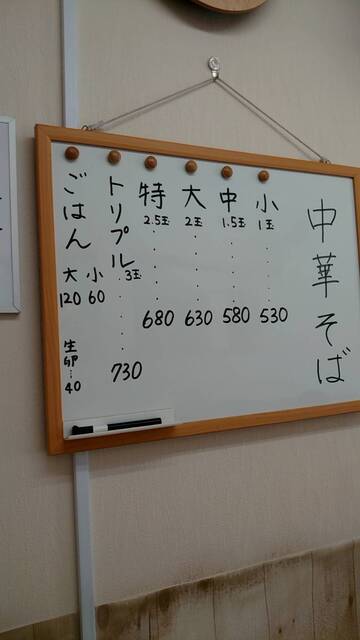 中華そば
小 1玉 ・・・・ 530
中 1.5玉 ・・・・ 580
大 2玉 ・・・・ 630
特 2.5玉 ・・・・ 680
トリプル 3玉 ・・・・ 730
ごはん
小 60
大 120
生卵…40